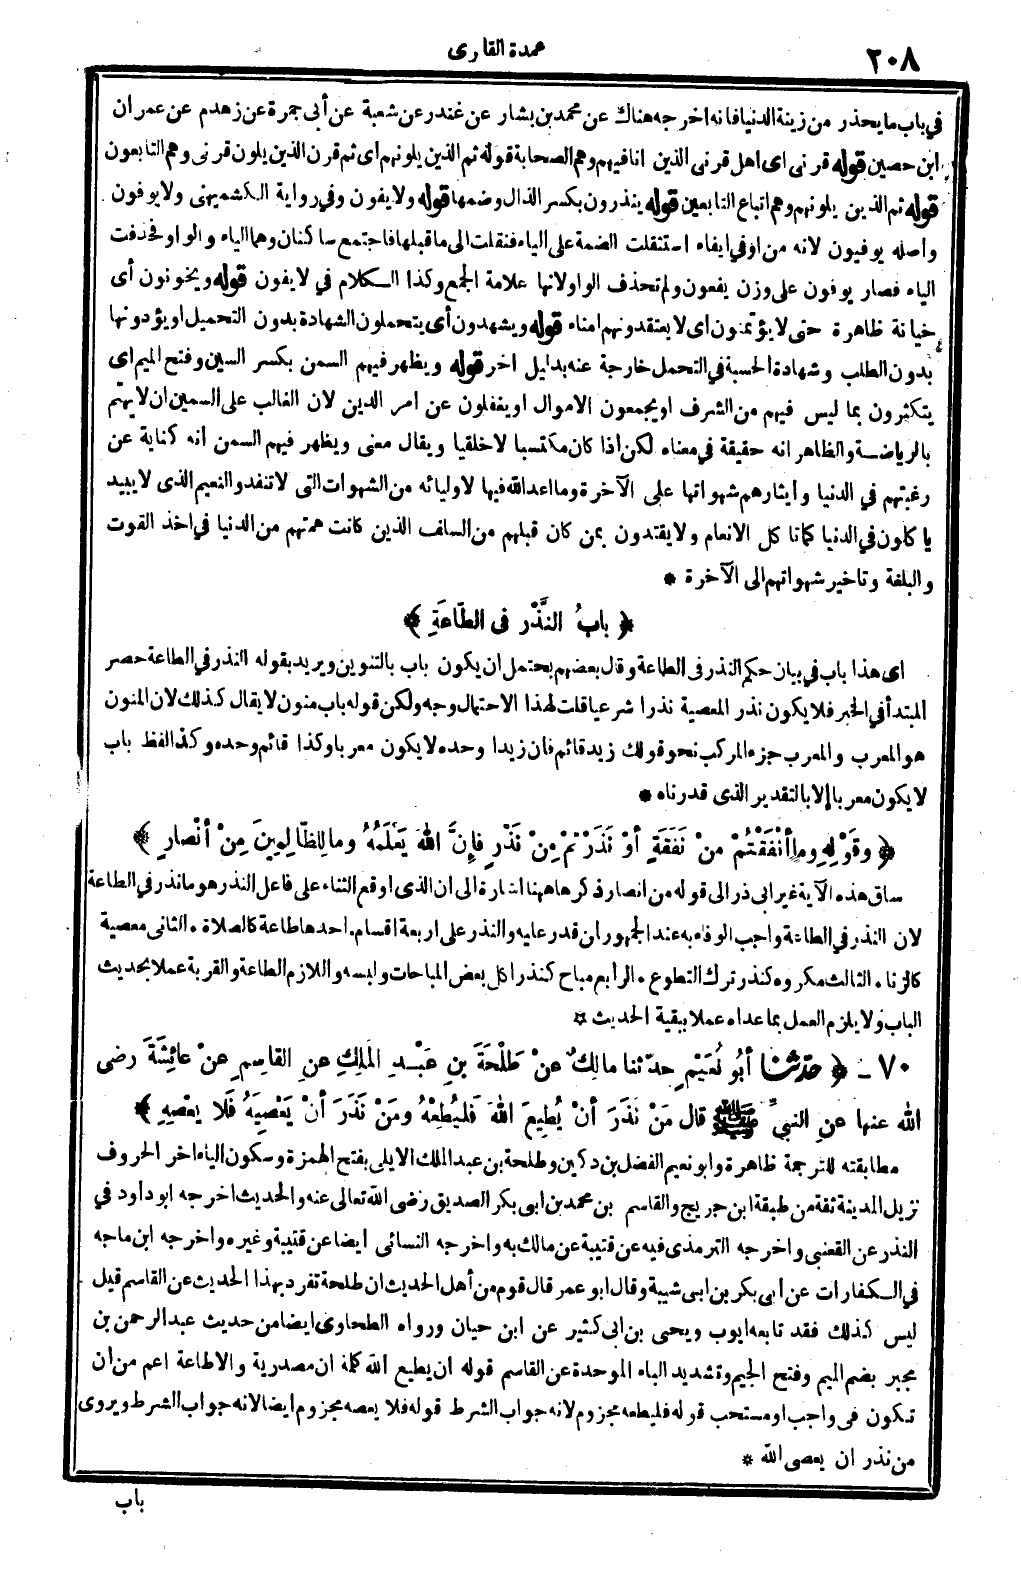 ٢٠٨
عمدة القارى
فى باب ما يحذر من زينة الدنيا فانه اخرجه هناك عن محمد بن بشار عن غندر عن شعبة عن أبى جمرة عن زهدم عن عمران
ابن حصين قوله قرنى اى اهل قرنى الذين انا فيهم وهم الصحابة قوله ثم الذين يلونهم اى ثم قرن الذين يلون قرنى وهم التابعون
قوله ثم الذين يلونهم وهم اتباع التابعين قوله ينذرون بكسر الذال وضمها قوله ولا يفون وفى رواية الكشميهنى ولا يوفون
واصله يوفيون لانه من اوفى ايفاء استثقلت الضمة على الياء فنقلت الى ما قبلها فاجتمع ساكنان وهما الياء والواو فحذفت
الياء فصار يوفون على وزن يفعون ولم تحذف الواو لانها علامة الجمع وكذا الكلام فى لا يفون قوله ويخونون أى
خيانة ظاهرة حتى لا يؤتمنون اى لا يعتقدونهم امناء قوله ويشهدون أى يتحملون الشهادة بدون التحميل او يؤدونها
بدون الطلب وشهادة الحسبة فى التحمل خارجة عنه بدليل اخر قوله ويظهر فيهم السمن بكسر السين وفتح الميم اى
يتكثرون بما ليس فيهم من الشرف او يجمعون الاموال او يغفلون عن امر الدين لان الغالب على السمين ان لا يهتم
بالرياضة والظاهر انه حقيقة فى معناه لكن اذا كان مكتسبا لا خلقيا ويقال معنى ويظهر فيهم السمن انه كناية عن
رغبتهم فى الدنيا وايثارهم شهواتها على الآخرة وما اعد الله فيها لاوليائه من الشهوات التى لا تنفد والنعيم الذى لا يبيد
يا كلون فى الدنيا كما تا كل الانعام ولا يقتدون بمن كان قبلهم من السلف الذين كانت همتهم من الدنيا فى اخذ القوت
والبلغة وتاخير شهواتهم الى الآخرة *
﴿ بابُ النَّذْرِ فى الطّاعَةِ ﴾
اى هذا باب فى بيان حكم النذر فى الطاعة وقال بعضهم يحتمل ان يكون باب بالتنوين ويريد بقوله النذر فى الطاعة حصر
المبتدأ فى الخبر فلا يكون نذر المعصية نذرا شرعيا قلت لهذا الاحتمال وجه ولكن قوله باب منون لا يقال كذلك لان المنون
هو المعرب والمعرب جزء المركب نحو قولك زيد قائم فان زيدا وحده لا يكون معربا وكذا قائم وحده وكذا لفظ باب
لا يكون معربا إلا بالتقدير الذى قدرناه *
﴿ وقَوْلِهِ وما أنْفَقْتُمْ منْ نَفَقَةٍ أوْ نَذَرْتمْ مِنْ نَذْرٍ فإِنَّ اللهَ يَعْلَمُهُ وما لِلظّالِمِينَ مِنْ أنْصارٍ ﴾
ساق هذه الآية غير ابى ذر الى قوله من انصار ذكرها ههنا اشارة الى ان الذى اوقع الثناء على فاعل النذر هو ما نذر فى الطاعة
لان النذر فى الطاعة واجب الوفاء به عند الجمهور ان قدر عليه والنذر على اربعة اقسام. احدها طاعة كالصلاة. الثانى معصية
كالزنا. الثالث مكروه كنذر ترك التطوع. الرابع مباح كنذر اكل بعض المباحات ولبسه واللازم الطاعة والقربة عملا بحديث
الباب ولا يلزم العمل بما عداه عملا ببقية الحديث *
٧٠ ـ ﴿ حدّثنا أبُو نُعَيْمٍ حدّثنا مالِكٌ عنْ طَلْحَةَ بنِ عَبْدِ المَلِكِ عنِ القاسِمِ عنْ عائِشَةَ رضى
الله عنها عنِ النبىِّ ﷺ قال مَنْ نَذَرَ أنْ يُطِيعَ اللهَ فَلْيُطِعْهُ ومَنْ نَذَرَ أنْ يَعْصِيَهُ فَلا يعْصِهِ ﴾
مطابقته للترجمة ظاهرة وابو نعيم الفضل بن دكين وطلحة بن عبد الملك الايلى بفتح الهمزة وسكون الياء اخر الحروف
نزيل المدينة ثقة من طبقة ابن جريج والقاسم بن محمد بن ابى بكر الصديق رضى الله تعالى عنه والحديث اخرجه ابو داود فى
النذر عن القعنبى واخرجه الترمذى فيه عن قتيبة عن مالك به واخرجه النسائى ايضا عن قتيبة وغيره واخرجه ابن ماجه
فى الكفارات عن ابى بكر بن ابى شيبة وقال ابو عمر قال قوم من أهل الحديث ان طلحة تفرد بهذا الحديث عن القاسم قيل
ليس كذلك فقد تابعه ايوب ويحيى بن ابى كثير عن ابن حبان ورواه الطحاوى ايضا من حديث عبد الرحمن بن
مجبر بضم الميم وفتح الجيم وتشديد الباء الموحدة عن القاسم قوله ان يطيع الله كلمة ان مصدرية والاطاعة اعم من ان
تكون فى واجب او مستحب قوله فليطعه مجزوم لانه جواب الشرط قوله فلا يعصه مجزوم ايضا لانه جواب الشرط ويروى
من نذر ان يعصى الله *
باب